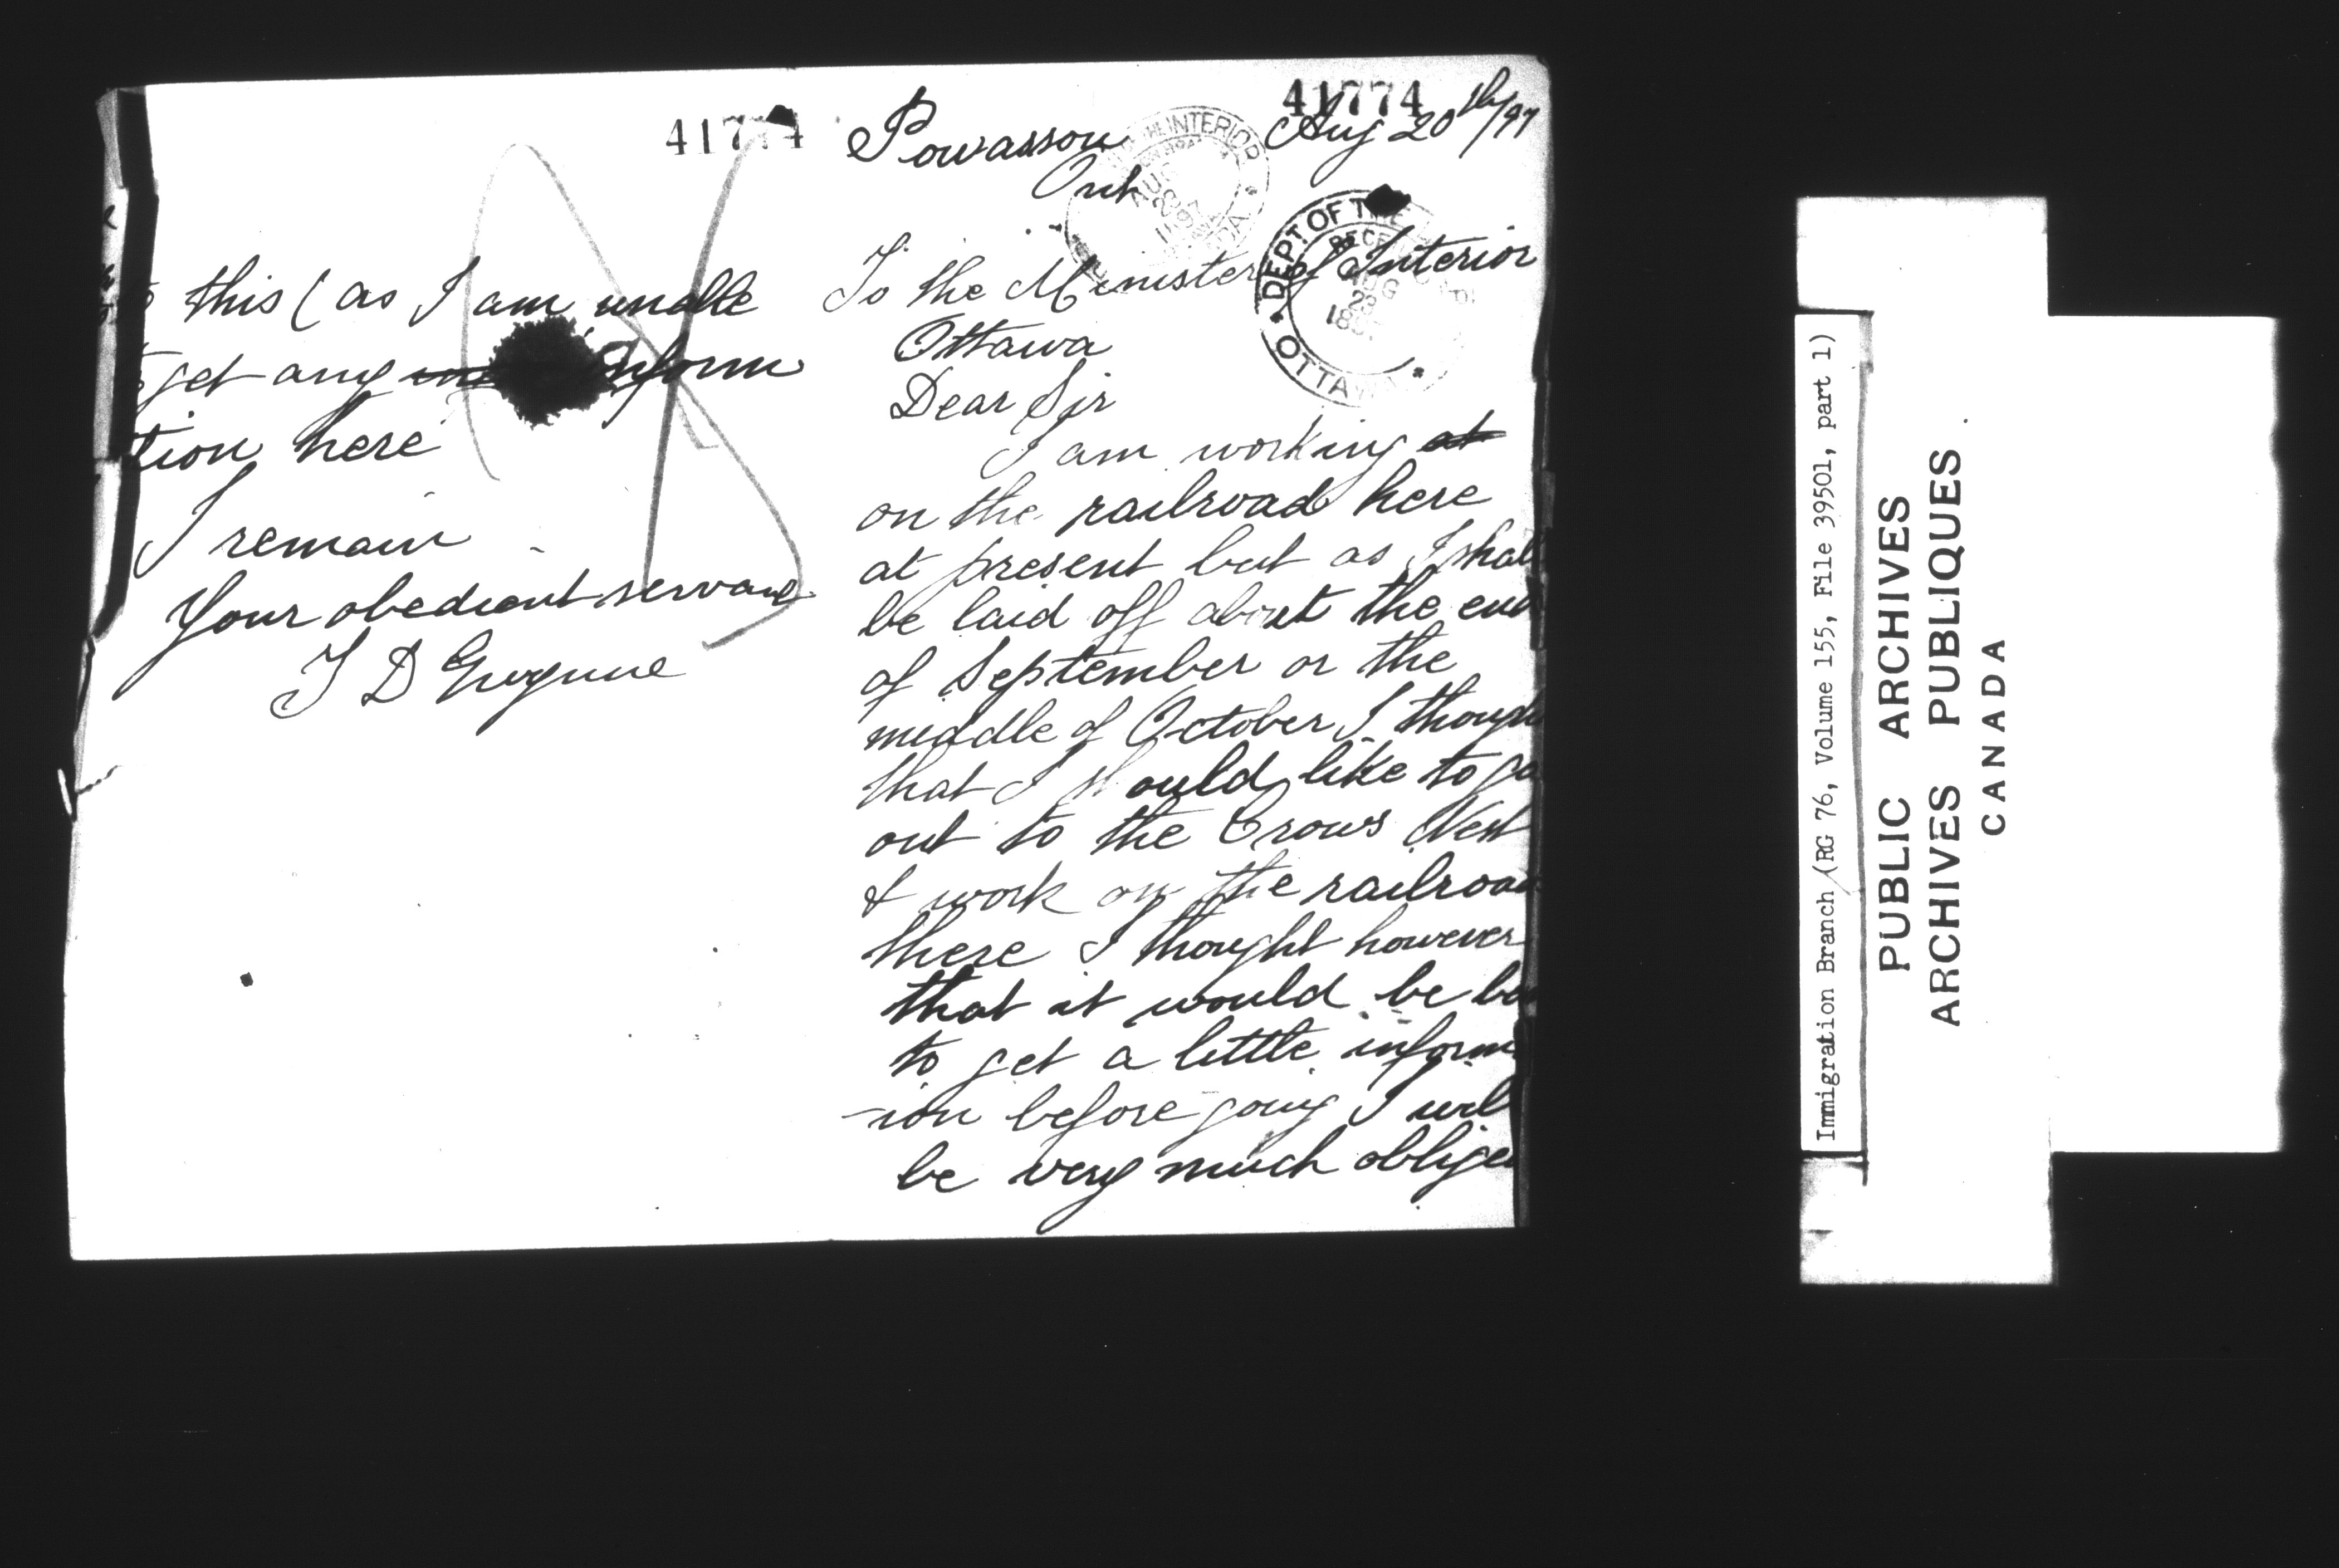 41774
this ( as I am unable
get any inform
tion here
I remain
Your obedient servant
T D Gwynne
41774
Powassou Aug 20th/97
Ont
To the Minister of Interior
Ottawa
Dear Sir
I am working at
on the railroad here
at present but as I shall
be laid off about the end
of September or the
middle of October I though
that I should like to go
out to the Crows Nest
& work on the railroad
there I thought however
that it would be be
to get a little inform
-ion before going I wil
be very much oblige
DEPT OF THE
INTERIOR
AUG
23
OTTAWA
Immigration Branch (RG 76, Volume 155, File 39501, part 1)
PUBLIC ARCHIVES
ARCHIVES PUBLIQUES
CANADA